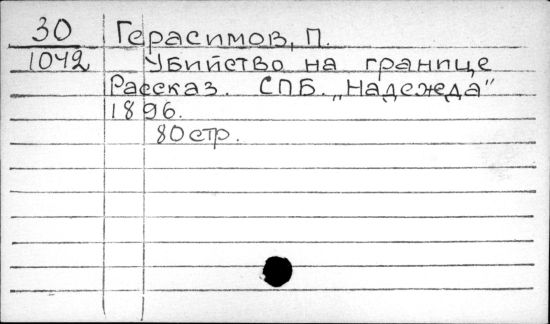 30 Герасимов, П.
1042 Убийство на границе
Рассказ. СПБ. „Надежда"
1896.
80 стр.